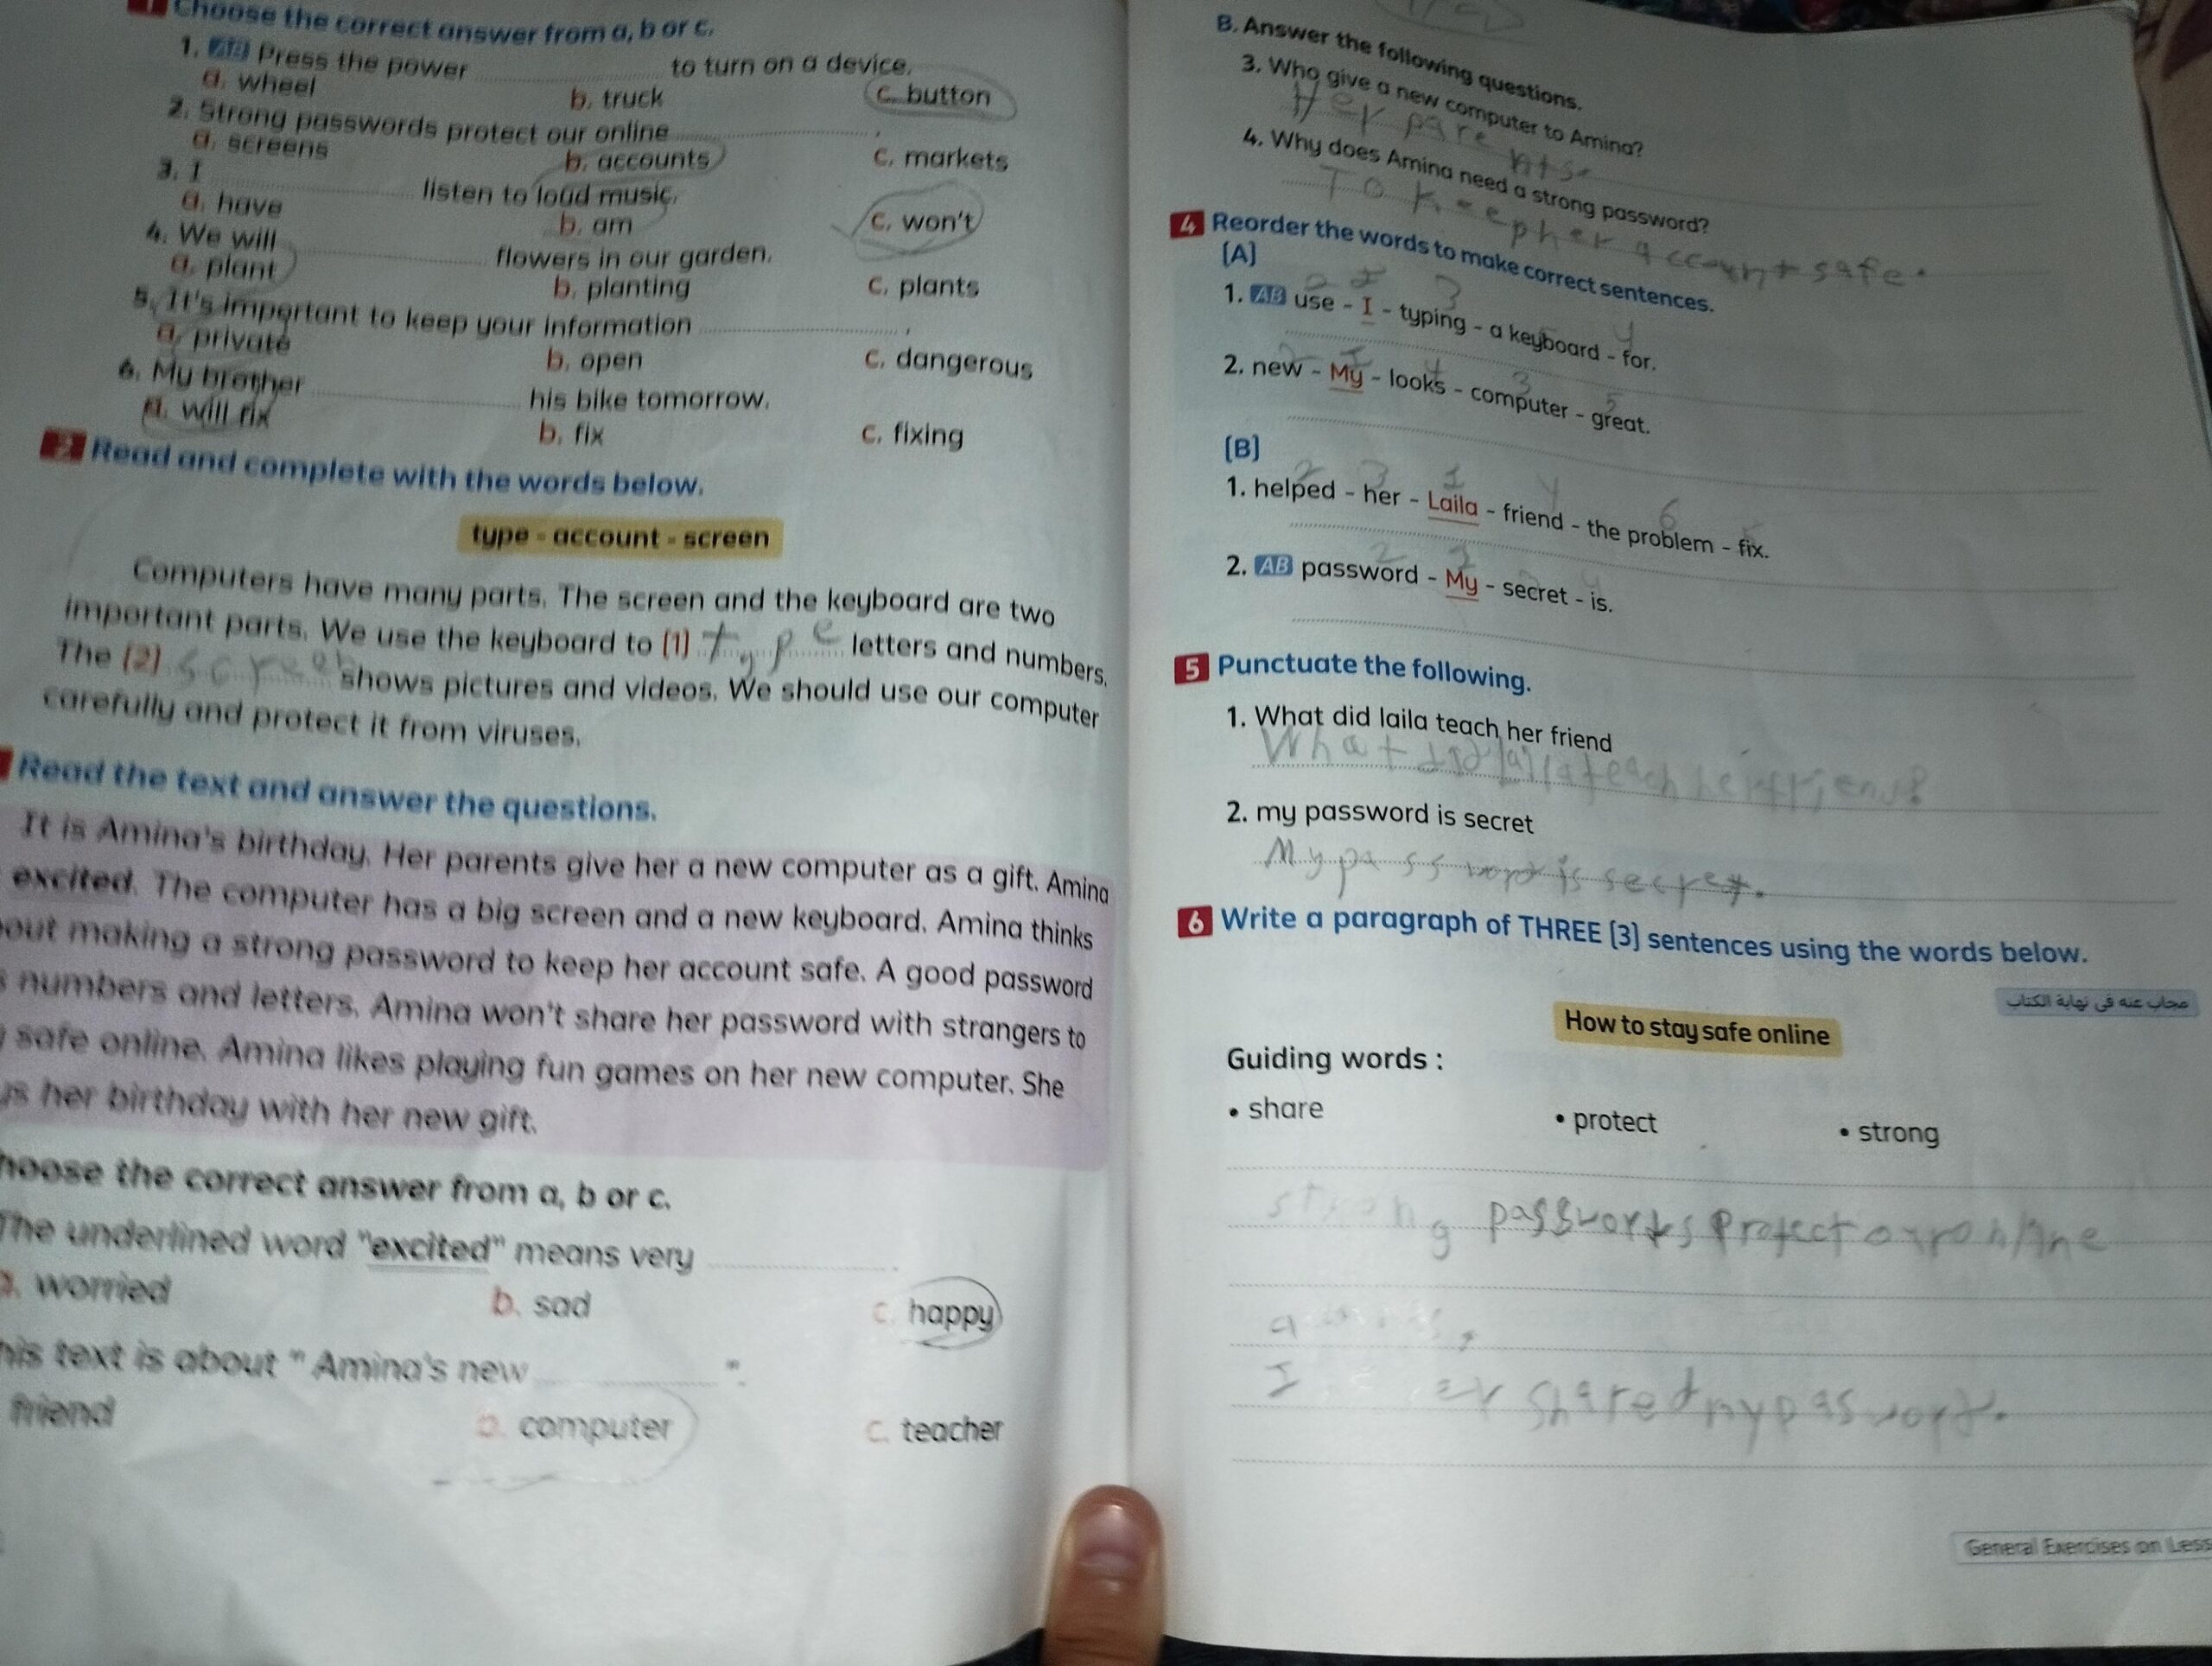 1 Choose the correct answer from a, b or c.
1. AB Press the power ............ to turn on a device.
a. wheel b. truck c. button
2. Strong passwords protect our online ............ .
a. screens b. accounts c. markets
3. I ............ listen to loud music.
a. have b. am c. won't
4. We will ............ flowers in our garden.
a. plant b. planting c. plants
5. It's important to keep your information ............ .
a. private b. open c. dangerous
6. My brother ............ his bike tomorrow.
a. will fix b. fix c. fixing
2 Read and complete with the words below.
type - account - screen
Computers have many parts. The screen and the keyboard are two
important parts. We use the keyboard to (1) type letters and numbers.
The (2) screen shows pictures and videos. We should use our computer
carefully and protect it from viruses.
Read the text and answer the questions.
It is Amina's birthday. Her parents give her a new computer as a gift. Amina
excited. The computer has a big screen and a new keyboard. Amina thinks
out making a strong password to keep her account safe. A good password
s numbers and letters. Amina won't share her password with strangers to
safe online. Amina likes playing fun games on her new computer. She
her birthday with her new gift.
hoose the correct answer from a, b or c.
The underlined word "excited" means very ............ .
a. worried b. sad c. happy
his text is about " Amina's new ............ ".
friend b. computer c. teacher
B. Answer the following questions.
3. Who give a new computer to Amina?
Her parents.
4. Why does Amina need a strong password?
To keep her account safe.
4 Reorder the words to make correct sentences.
(A)
2 1 3 5 4
1. AB use - I - typing - a keyboard - for.
2 1 4 3 5
2. new - My - looks - computer - great.
(B)
2 3 1 4 6 5
1. helped - her - Laila - friend - the problem - fix.
2 1
2. AB password - My - secret - is.
5 Punctuate the following.
1. What did laila teach her friend
What did laila teach her friend?
2. my password is secret
My password is secret.
6 Write a paragraph of THREE (3) sentences using the words below.
مجاب عنه فى نهاية الكتاب
How to stay safe online
Guiding words :
• share • protect • strong
strong passwords protect our online
I shared my password.
General Exercises on Less